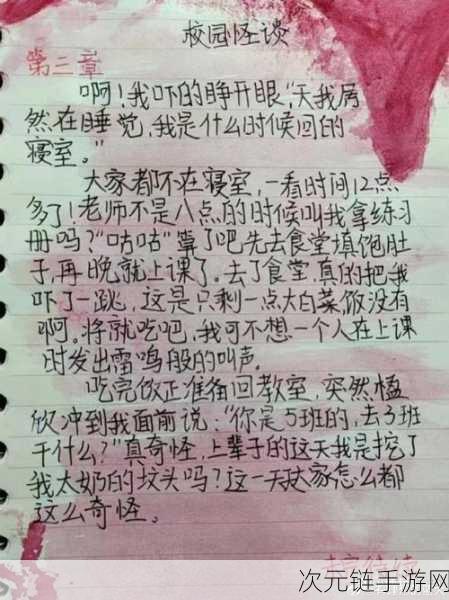 校园怪谈
第三章
啊!我吓的睁开眼,"天我居
然在睡觉,我是什么时候回的
寝室。"
大家都不在寝室,一看时间12点
多了!老师不是八点的时候叫我拿练习
册吗?"咕咕"算了吧先去食堂填饱肚
子,再晚就上课了。去了食堂真的把我
吓了一跳,这是只剩一点大白菜,饭没有
啊。将就吃吧,我可不想一个人在上课
时发出雷鸣般的叫声。
吃完饭正准备回教室,突然楹
欣冲到我面前说:"你是5班的,去3班
干什么?"真奇怪,上辈子的这天我是挖了
我太奶的坟头吗?这一天大家怎么都
这么奇怪。
次元链手游网